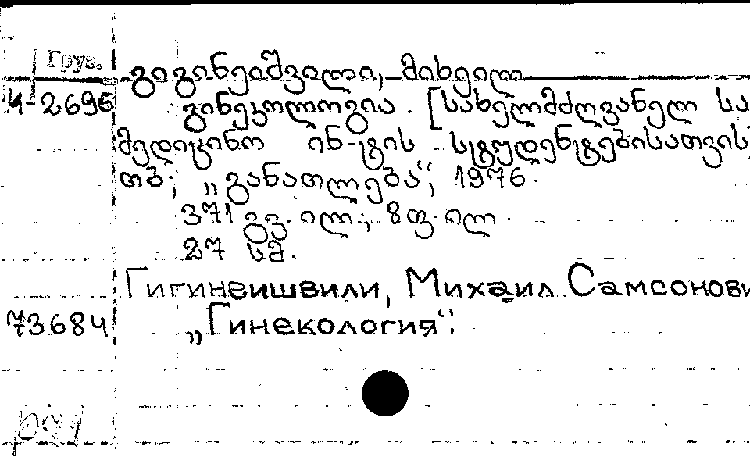 Груз.
გიგინეიშვილი, მიხეილ
4-2696
გინეკოლოგია. [სახელმძღვანელო სა
მედიცინო ინ-ტის სტუდენტებისათვის
თბ., „განათლება“, 1976.
371 გვ. ილ., 8 ფ. ილ.
27 სმ.
Гигинеишвили, Михаил Самсонови
73684
„Гинекология“.